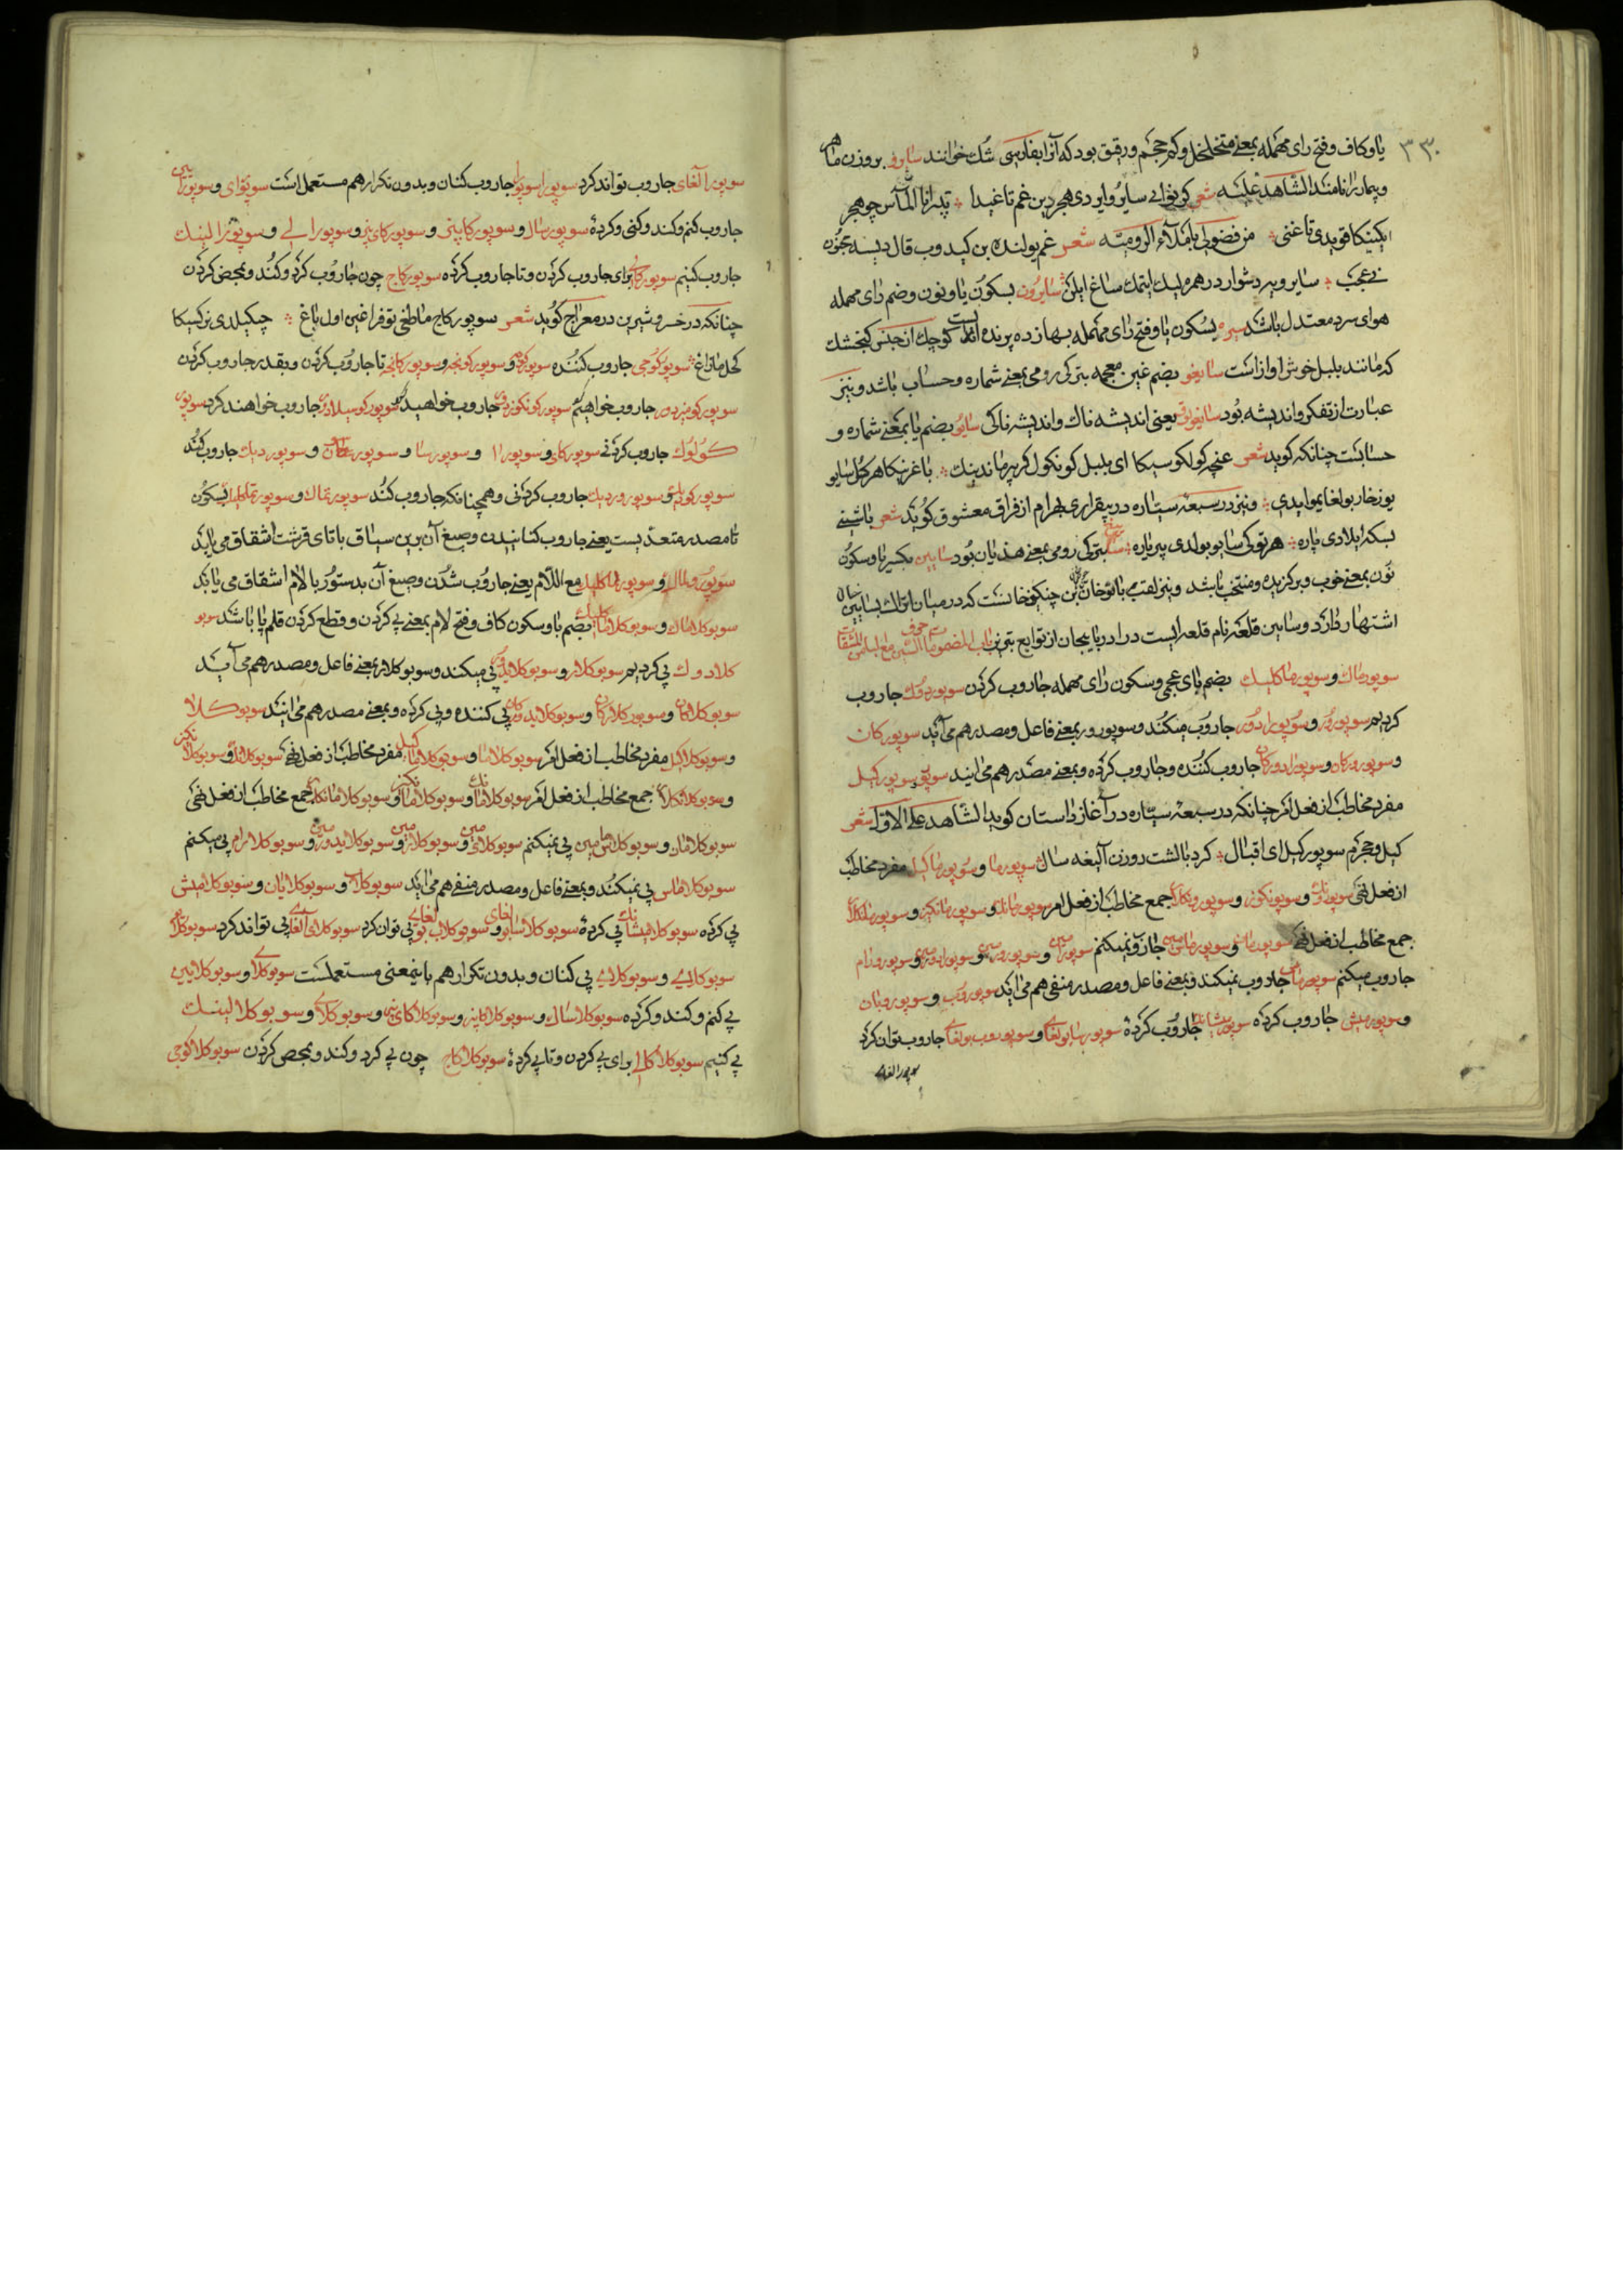 ٣٣٠
یا و کاف و فتح رای مهمله بمعنی متخلخل و کم حجم و رقیق بود که آنرا بفارسی شُك خوانند سایرو بر وزن ماهر
و بیمار را نامند الشاهد علیه شعر
ایکینکا قویدی تاغنی من فضولی باملاء الرومیّه شعر غم یولنده بن کیدوب قال دیسه مجنون
نی عجب سایرویه دشوار در همره لیك ایتمك ساغ ایلن سایرون بسکون یا و نون و ضم رای مهمله
هوای سرد معتدل باشد سیره بسکون یا و فتح رای مهمله بهاز ده پرنده ایست کوچك از جنس کنجشك
که مانند بلبل خوش اواز است سایغو بضم غین معجمه بترکی رومی بمعنی شماره و حساب باشد و نیز
عبارت از تفکر و اندیشه بود سایغولو یعنی اندیشه ناك و اندیشه ناکی سایو بضم یا بمعنی شماره و
حسابست چنانکه کوید شعر غنچه کولکوسیکا ای بلبل کونکول کر بیرماندینك باغرینکا هر کل سایو
یوز خار بولغای ایدی و نیز در سبعه سیّاره در بیقراری بهرام از فراق معشوق کوید شعر باشینی
بسکه ایلادی پاره هر توکی سایو بولدی بیر یاره بترکی رومی بمعنی هذیان بود سایین بکسر یا و سکون
نون بمعنی خوب و برکزیده و منتخب باشد و نیز لقب باتو خان بن چنکیز خانست که در میان اتراك بسایین خان
اشتهار دارد و سایین قلعه نام قلعه ایست در اذربایجان از توابع تبریز باب المضموم السین مع الباء المشتقات
سوپورماك و سوپورماکلیك بضم بای عجمی و سکون رای مهمله جاروب کردن سوپوردوك جاروب
کردیم سوپورور و سوپورادور جاروب میکند و سوپورور بمعنی فاعل و مصدر هم می آید سوپورکان
و سوپوروركان و سوپورادورکان جاروب کننده و جاروب کرده و بمعنی مصدر هم می ایند سوپور سوپورکیل
مفرد مخاطب از فعل امر چنانکه در سبعه سیّاره در آغاز داستان کوید الشاهد علی الاوّل شعر
کیل و حجرم سوپورکیل ای اقبال کرد بالشت دورزن آلیغه سال سوپورما و سوپورماکیل مفرد مخاطب
از فعل نهی سوپورونك و سوپورونکوز و سوپورونکلار جمع مخاطب از فعل امر سوپورمانك و سوپورمانکیز و سوپورمانکلار
جمع مخاطب از فعل نهی سوپورمان و سوپورماس مین جاروب نمیکنم
جاروب میکنم سوپورماس جاروب نمیکند و بمعنی فاعل و مصدر منفی هم می اید سوپوروب و سوپوروبان
و سوپورمیش جاروب کرده سوپورمیشاند جاروب کردهٔ سوپورسابولغای و سوپوروب بولغای جاروب توان کرد
سوپورا الغای
سوپورا آلغای جاروب تواند کرد سوپورا سوپورا جاروب کنان و بدون تکرار هم مستعمل است سوپورای و سوپورایین
جاروب کنم و کند و کنی و کردهٔ سوپورسال و سوپورکایسن و سوپورکای سیز و سوپورالی و سوپورالینك
جاروب کنیم سوپورکالی برای جاروب کردن و تا جاروب کرده سوپورکاج چون جاروب کرد و کند و بمحض کردن
چنانکه در خسرو شیرین در معراج کوید شعر سوپورکاج ماطغی توفراغین اول باغ چیکیلدی نرکسیکا
کحل مازاغ سوپورکوجی جاروب کننده سوپورکونجه و سوپورکونچه و سوپورکانچه تا جاروب کردن و بقدر جاروب کردن
سوپورکومیز دور جاروب خواهیم کرد سوپورکونکوزدور جاروب خواهید کرد سوپورکوسیلادور جاروب خواهند کرد سوپور
کولوك جاروب کردنی سوپورکای و سوپورا و سوپورسا و سوپورغان و سوپوردیك جاروب کند
سوپورکودیك و سوپورور دیك جاروب کردنی و همچنانکه جاروب کند سوپورتماك و سوپورتماکلیك بسکون
تا مصدر متعدّیست یعنی جاروب کنانیدن و صیغ آن برین سیاق با تای قرشت اشتقاق می یابد
سوپورولماك و سوپورولماکلیك مع اللّام یعنی جاروب شدن و صیغ آن بدستور با لام اشتقاق می یابد
سوبوکلاماك و سوبوکلاماکلیك بضم با و سکون کاف و فتح لام بمعنی پی کردن و قطع کردن قلم پا باشد سوبو
کلادوك پی کردیم سوبوکلار و سوبوکلایدور پی میکند و سوبوکلار بمعنی فاعل و مصدر هم می آید
سوبوکلاکان و سوبوکلارکان و سوبوکلایدورکان پی کننده و پی کرده و بمعنی مصدر هم می ایند سوبوکلا
و سوبوکلاکیل مفرد مخاطب از فعل امر سوبوکلاما و سوبوکلاماکیل مفرد مخاطب از فعل نهی سوبوکلانك و سوبوکلانکیز
و سوبوکلانکلار جمع مخاطب از فعل امر سوبوکلامانك و سوبوکلامانکیز و سوبوکلامانکلار جمع مخاطب از فعل نهی
سوبوکلامان و سوبوکلاماس مین پی نمیکنم سوبوکلای مین و سوبوکلار مین و سوبوکلایدور مین و سوبوکلارام پی میکنم
سوبوکلاماس پی نمیکند و بمعنی فاعل و مصدر منفی هم می اید سوبوکلاب و سوبوکلابان و سوبوکلامیش
پی کرده سوبوکلامیشاند پی کردهٔ سوبوکلاسابولغای و سوبوکلاب بولغای پی توان کرد سوبوکلای آلغای پی تواند کرد سوبوکلای
سوبوکلای و سوبوکلای پی کنان و بدون تکرار هم باینمعنی مستعملست سوبوکلای و سوبوکلایین
پی کنم و کند و کرده سوبوکلاسال و سوبوکلاکایسن و سوبوکلاکای سیز و سوبوکلالی و سوبوکلالینك
پی کنیم سوبوکلاکالی برای پی کردن و تا پی کردهٔ سوبوکلاکاج چون پی کرد و کند و بمحض کردن سوبوکلاکوجی